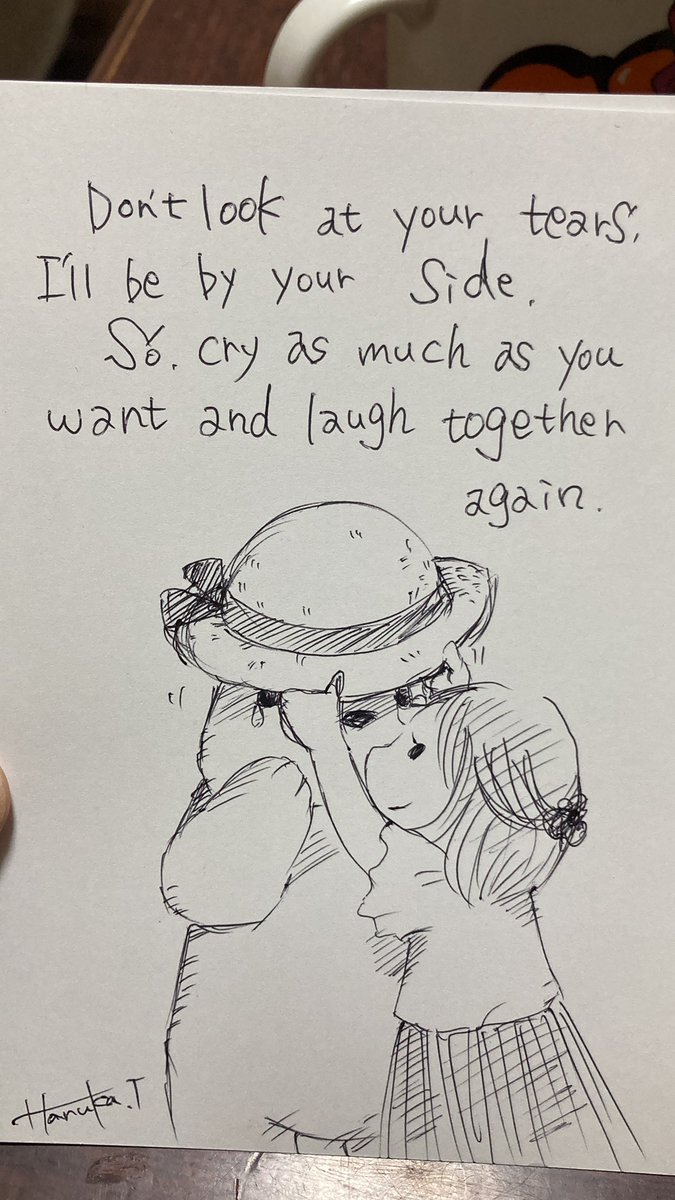 Don't look at your tears.
I'll be by your side.
So. cry as much as you
want and laugh together
again.
Haruka.T